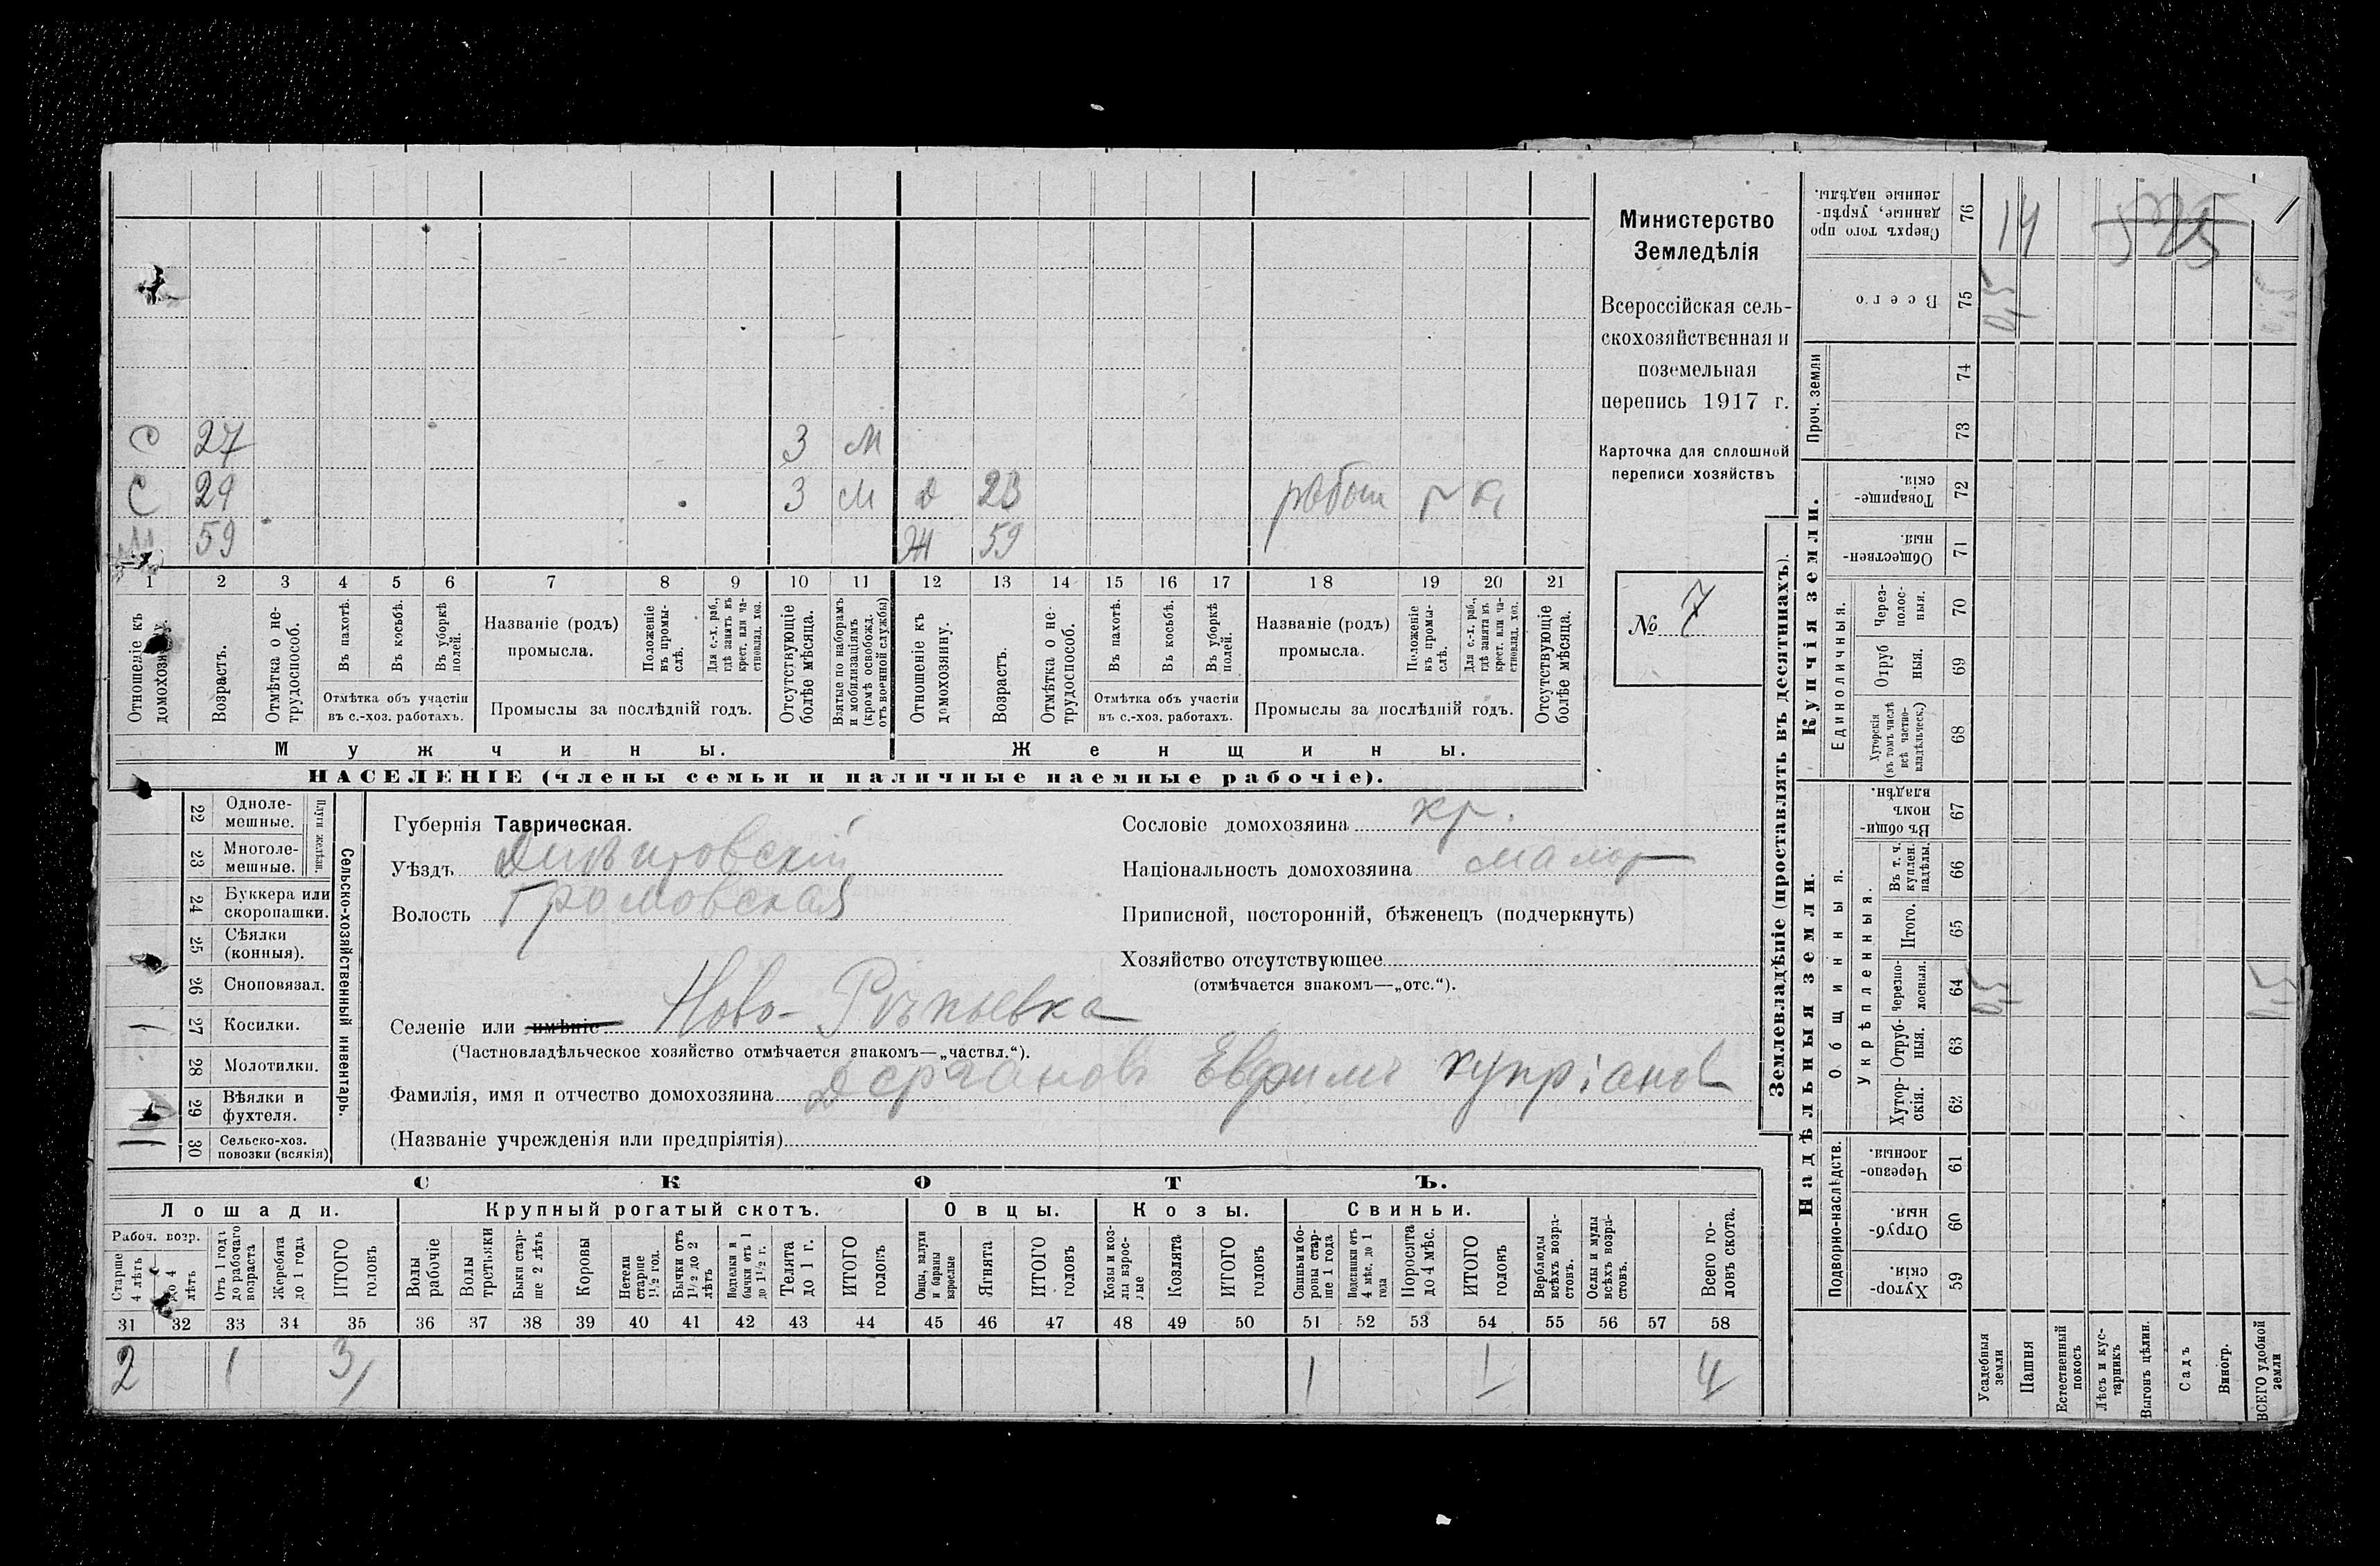 С 27 3 М
С 29 3 М Д 23 работ р к
59 Ж 59
1 2 3 4 5 6 7 8 9 10 11 12 13 14 15 16 17 18 19 20 21
Отношеніе къ домохозяину.
Возрастъ.
Отмѣтка о не-
трудоспособ.
Въ пахотѣ.
Въ косьбѣ.
Въ уборкѣ полей.
Отмѣтка объ участіи
въ с.-хоз. работахъ.
Названіе (родъ)
промысла.
Положеніе въ промы-
слѣ.
Для с.-х. раб.,
гдѣ занятъ въ
крест. или ча-
стновлад. хоз.
Промыслы за послѣдній годъ.
Отсутствующіе
болѣе мѣсяца.
Взятые по наборамъ
и мобилизаціямъ
(кромѣ освобожд.
отъ военной службы)
Отношеніе къ
домохозяину.
Возрастъ.
Отмѣтка о не-
трудоспособ.
Въ пахотѣ.
Въ косьбѣ.
Въ уборкѣ
полей.
Отмѣтка объ участіи
въ с.-хоз. работахъ.
Названіе (родъ)
промысла.
Положеніе
въ промы-
слѣ.
Для с.-х. раб.,
гдѣ занята въ
крест. или ча-
стновлад. хоз.
Промыслы за послѣдній годъ.
Отсутствующіе
болѣе мѣсяца.
Мужчины.
Женщины.
НАСЕЛЕНІЕ (члены семьи и наличные наемные рабочіе).
Министерство
Земледѣлія
Всероссійская сель-
скохозяйственная и
поземельная
перепись 1917 г.
Карточка для сплошной
переписи хозяйствъ
№ 7
22 Одноле-
мешные.
23 Многоле-
мешные.
Плуги желѣзн.
24 Буккера или
скоропашки.
25 Сѣялки
(конныя).
26 Сноповязал.
27 Косилки.
28 Молотилки.
29 Вѣялки и
фухтеля.
30 Сельско-хоз.
повозки (всякія)
Сельско-хозяйственный инвентарь.
Губернія Таврическая.
Уѣздъ Днѣпровскій
Волость Громовская
Селеніе или имѣніе Ново-
(Частновладѣльческое хозяйство отмѣчается знакомъ—„частвл.“).
Фамилія, имя и отчество домохозяина Дергановъ Евфимъ Купріанов
(Названіе учрежденія или предпріятія)
Сословіе домохозяина кр.
Національность домохозяина малор
Приписной, посторонній, бѣженецъ (подчеркнуть)
Хозяйство отсутствующее
(отмѣчается знакомъ—„отс.“).
СКОТЪ.
Лошади.
Крупный рогатый скотъ.
Овцы.
Козы.
Свиньи.
Рабоч. возр.
Старше
4 лѣтъ
до 4
лѣтъ
Отъ 1 года
до рабочаго
возраста
Жеребята
до 1 года
ИТОГО
головъ
Волы
рабочіе
Волы
третьяки
Быки стар-
ше 2 лѣтъ
Коровы
Нетели
старше
1½ год.
Бычки отъ
1½ до 2
лѣтъ
Подтелки и
бычки отъ 1
до 1½ г.
Телята
до 1 г.
ИТОГО
головъ
Овцы, валухи
и бараны
взрослые
Ягнята
ИТОГО
головъ
Козы и коз-
лы взрос-
лые
Козлята
ИТОГО
головъ
Свиньи и бо-
ровы стар-
ше 1 года
Подсвинки отъ
4 мѣс. до 1
года
Поросята
до 4 мѣс.
ИТОГО
головъ
Верблюды
всѣхъ возра-
стовъ.
Ослы и мулы
всѣхъ возра-
стовъ.
Всего го-
ловъ скота.
31 32 33 34 35 36 37 38 39 40 41 42 43 44 45 46 47 48 49 50 51 52 53 54 55 56 57 58
2 1 3 1 1 4
Землевладѣніе (проставлять въ десятинахъ).
Купчія земли.
Надѣльныя земли.
Сверхъ того про
данные, укрѣп-
ленные надѣлы.
76 14
Всего
75 0,5
Проч. земли
74
73
Товарище-
скія.
72
Обществен-
ныя.
71
Единоличныя.
Через-
полос-
ныя.
70
Отруб
ныя.
69
Хуторскія
(въ томъ числѣ
всѣ частно-
владѣльческ.)
68
Общинныя.
Въ общи-
номъ
владѣн.
67
Укрѣпленныя.
Въ т. ч.
куплен.
надѣлы.
66
Итого.
65
Черезпо-
лосныя.
64 0,5
Отруб-
ныя.
63
Хутор-
скія.
62
Подворно-наслѣдств.
Черезпо-
лосныя.
61
Отруб-
ныя.
60
Хутор-
скія.
59
Усадебныя
земли
Пашня
Естественный
покосъ
Лѣсъ и кус-
тарникъ
Выгонъ цѣлин.
Садъ
Виногр.
ВСЕГО удобной
земли